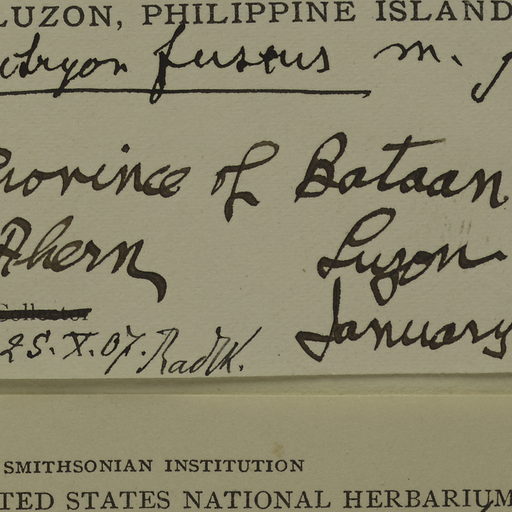 LUZON, PHILIPPINE ISLAND
fuscus m.
Province of Bataan
Ahern Luzon
Collector January
25.X.07. Radlk.
SMITHSONIAN INSTITUTION
TED STATES NATIONAL HERBARIUM